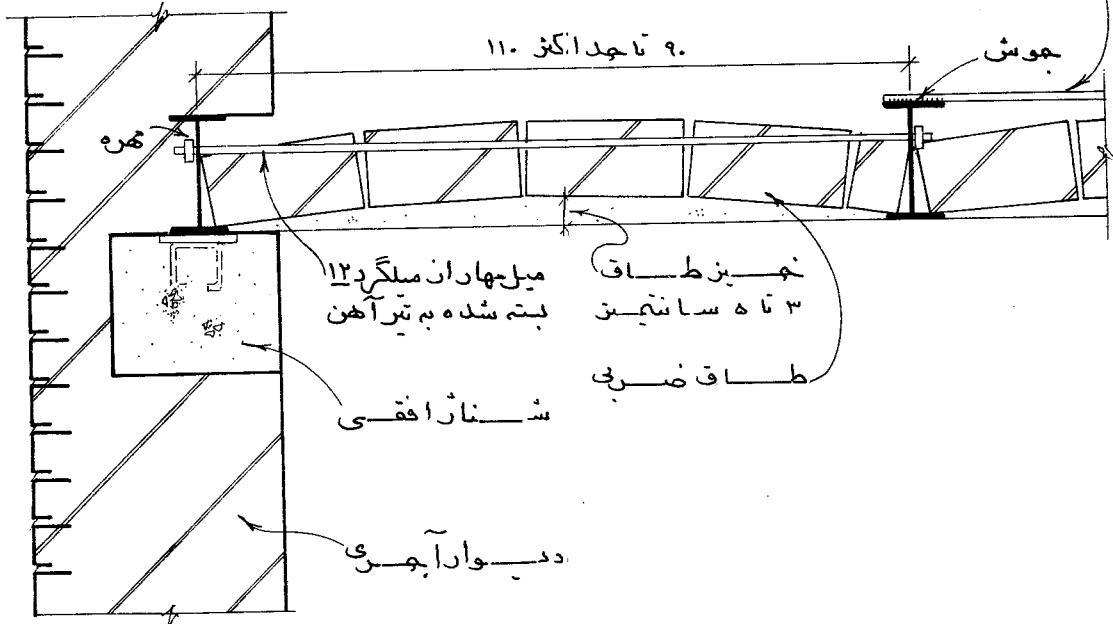 ۹۰ تا حداکثر ۱۱۰
جوش
مهره
میل مهار از میلگرد ۱۲
بسته شده به تیرآهن
خیز طاق
۳ تا ۵ سانتیمتر
طاق ضربی
شناژ افقی
دیوار آجری